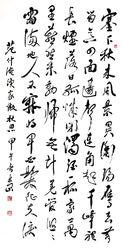 塞下秋来風景異衡陽雁去
無留意四面邊聲連角起千嶂裏
長煙落日孤城閉濁酒一杯家萬
里燕然未勒歸無計羌管悠悠
霜滿地人不寐將軍白髮征夫淚
范仲淹漁家傲秋思 甲午